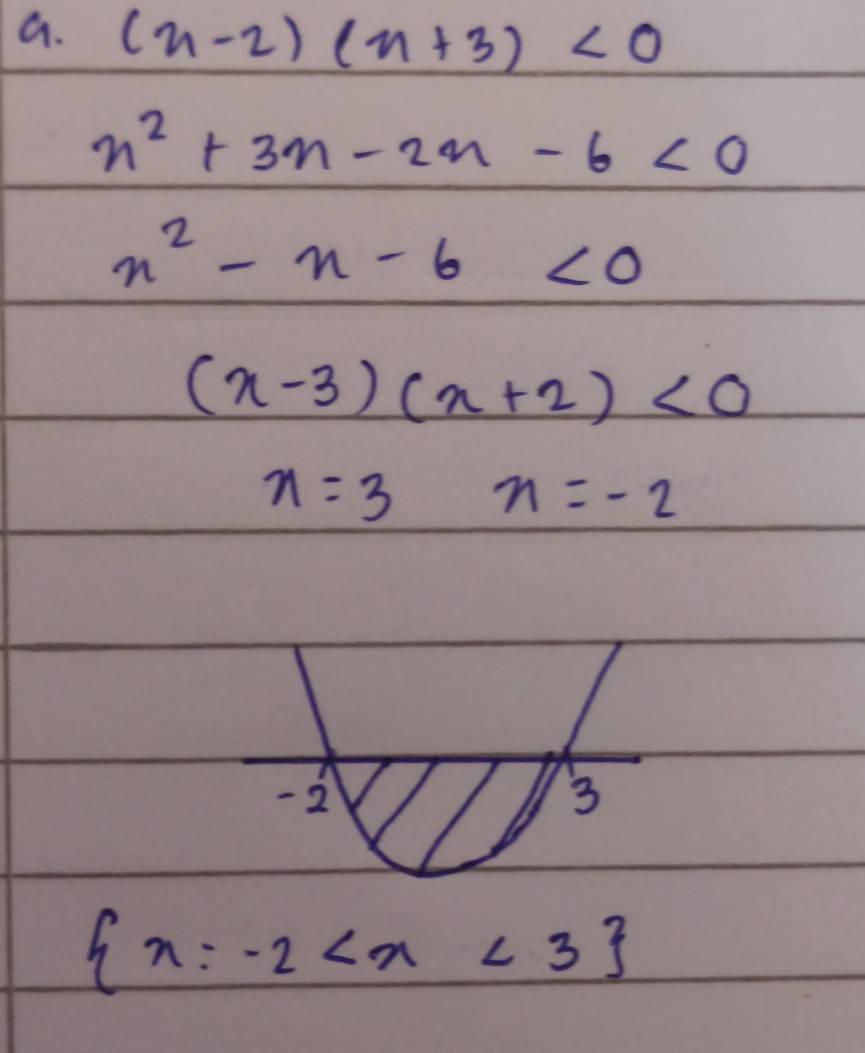 a. (x-2) (x+3) < 0
x² + 3x - 2x - 6 < 0
x² - x - 6 < 0
(x-3) (x+2) < 0
x = 3 x = -2
-2 3
{ x: -2 < x < 3 }